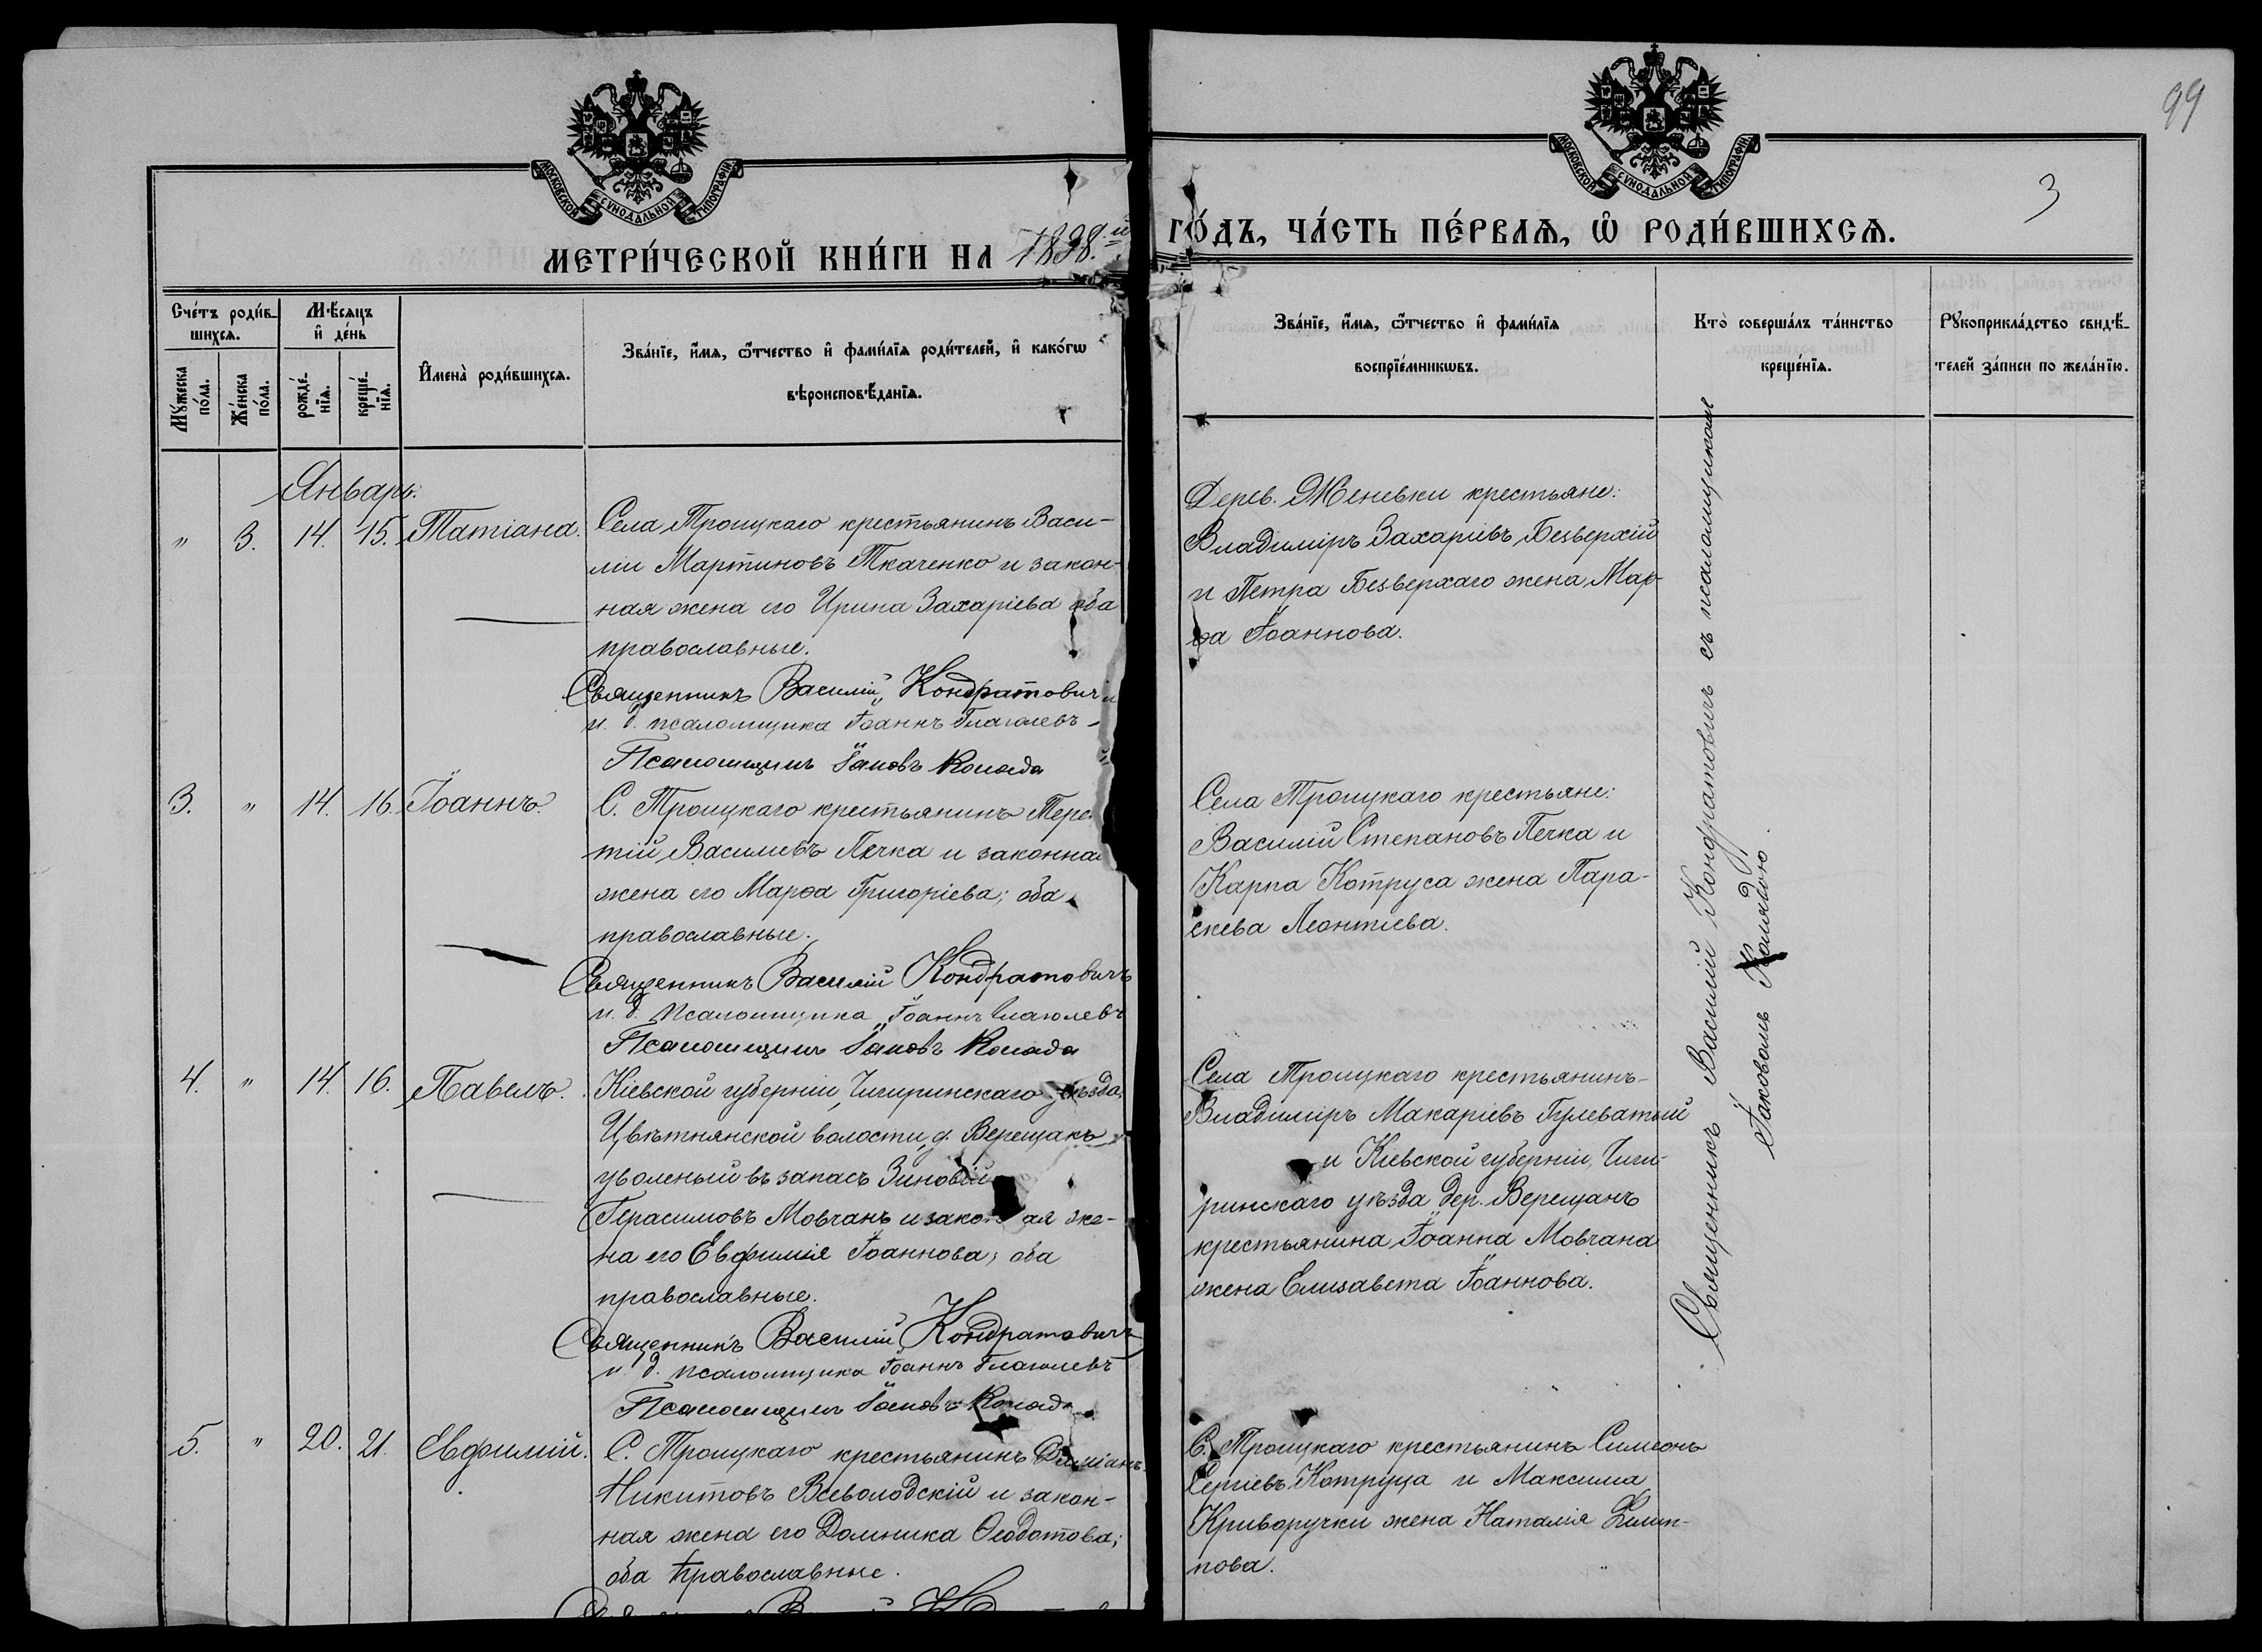 99
3
МОСКОВСКОЙ СѴНОДАЛЬНОЙ ТИПОГРАФІИ
МОСКОВСКОЙ СѴНОДАЛЬНОЙ ТИПОГРАФІИ
МЕТРИ́ЧЕСКОЙ КНИ́ГИ НА 1898.й ГО́ДЪ, ЧА́СТЬ ПЕ́РВАѦ, Ѡ҆ РОДИ́ВШИХСѦ.
Сче́тъ роди́в-
шихсѧ.
Мꙋ́жеска по́ла.
Же́нска по́ла.
Мѣ́сѧцъ
и҆ де́нь
рожде́-
нїѧ.
креще́-
нїѧ.
И҆мена̀ роди́вшихсѧ.
Зва́нїе, и҆́мѧ, ѻ҆́тчество и҆ фами́лїѧ роди́телей, и҆ како́гѡ
вѣроисповѣ́данїѧ.
Зва́нїе, и҆́мѧ, ѻ҆́тчество и҆ фами́лїѧ
воспрїе́мникѡвъ.
Кто̀ соверша́лъ та́инство
креще́нїѧ.
Рꙋкоприкла́дство свидѣ́-
телей за́писи по жела́нїю.
Январь.
" 3. 14. 15. Татіана.
Села Троицкаго крестьянинъ Васи-
лій Мартиновъ Ткаченко и закон-
ная жена его Ирина Захаріева оба
православные.
Священникъ Василій Кондратовичъ
и. д. псаломщика Іоаннъ Глаголевъ
Псаломщикъ Іаковъ Коляда
Дерев. Женевки крестьяне:
Владиміръ Захаріевъ Безверхій
и Петра Безверхаго жена Мар-
ѳа Іоаннова.
3. " 14. 16. Іоаннъ.
С. Троицкаго крестьянинъ Терен
тій Василіевъ Печка и законная
жена его Марѳа Григоріева; оба
православные.
Священникъ Василій Кондратовичъ
и. д. псаломщика Іоаннъ Глаголевъ
Псаломщикъ Іаковъ Коляда
Села Троицкаго крестьяне:
Василій Степановъ Печка и
Карпа Котруса жена Пара-
скева Леонтіева.
4. " 14. 16. Павелъ.
Кіевской губерніи, Чигиринскаго уѣзда,
Цвѣтнянской волости, д. Верещакъ
уволеный въ запасъ Зиновій
Герасимовъ Мовчанъ и законная же-
на его Евфимія Іоаннова; оба
православные.
Священникъ Василій Кондратовичъ
и. д. псаломщика Іоаннъ Глаголевъ
Псаломщикъ Іаковъ Коляда
Села Троицкаго крестьянинъ
Владиміръ Макаріевъ Гулеватый
и Кіевской губерніи, Чиги-
ринскаго уѣзда дер. Верещакъ
крестьянина Іоанна Мовчана
жена Елисавета Іоаннова.
5. " 20. 21. Евфимій.
С. Троицкаго крестьянинъ Даміанъ
Никитовъ Всеволодскій и закон-
ная жена его Домника Ѳеодотова;
оба православные.
С. Троицкаго крестьянинъ Симеонъ
Сергіевъ Котруца и Максима
Криворучки жена Наталія Филип-
пова.
Священникъ Василій Кондратовичъ съ псаломщикомъ
Іаковомъ Колядою.